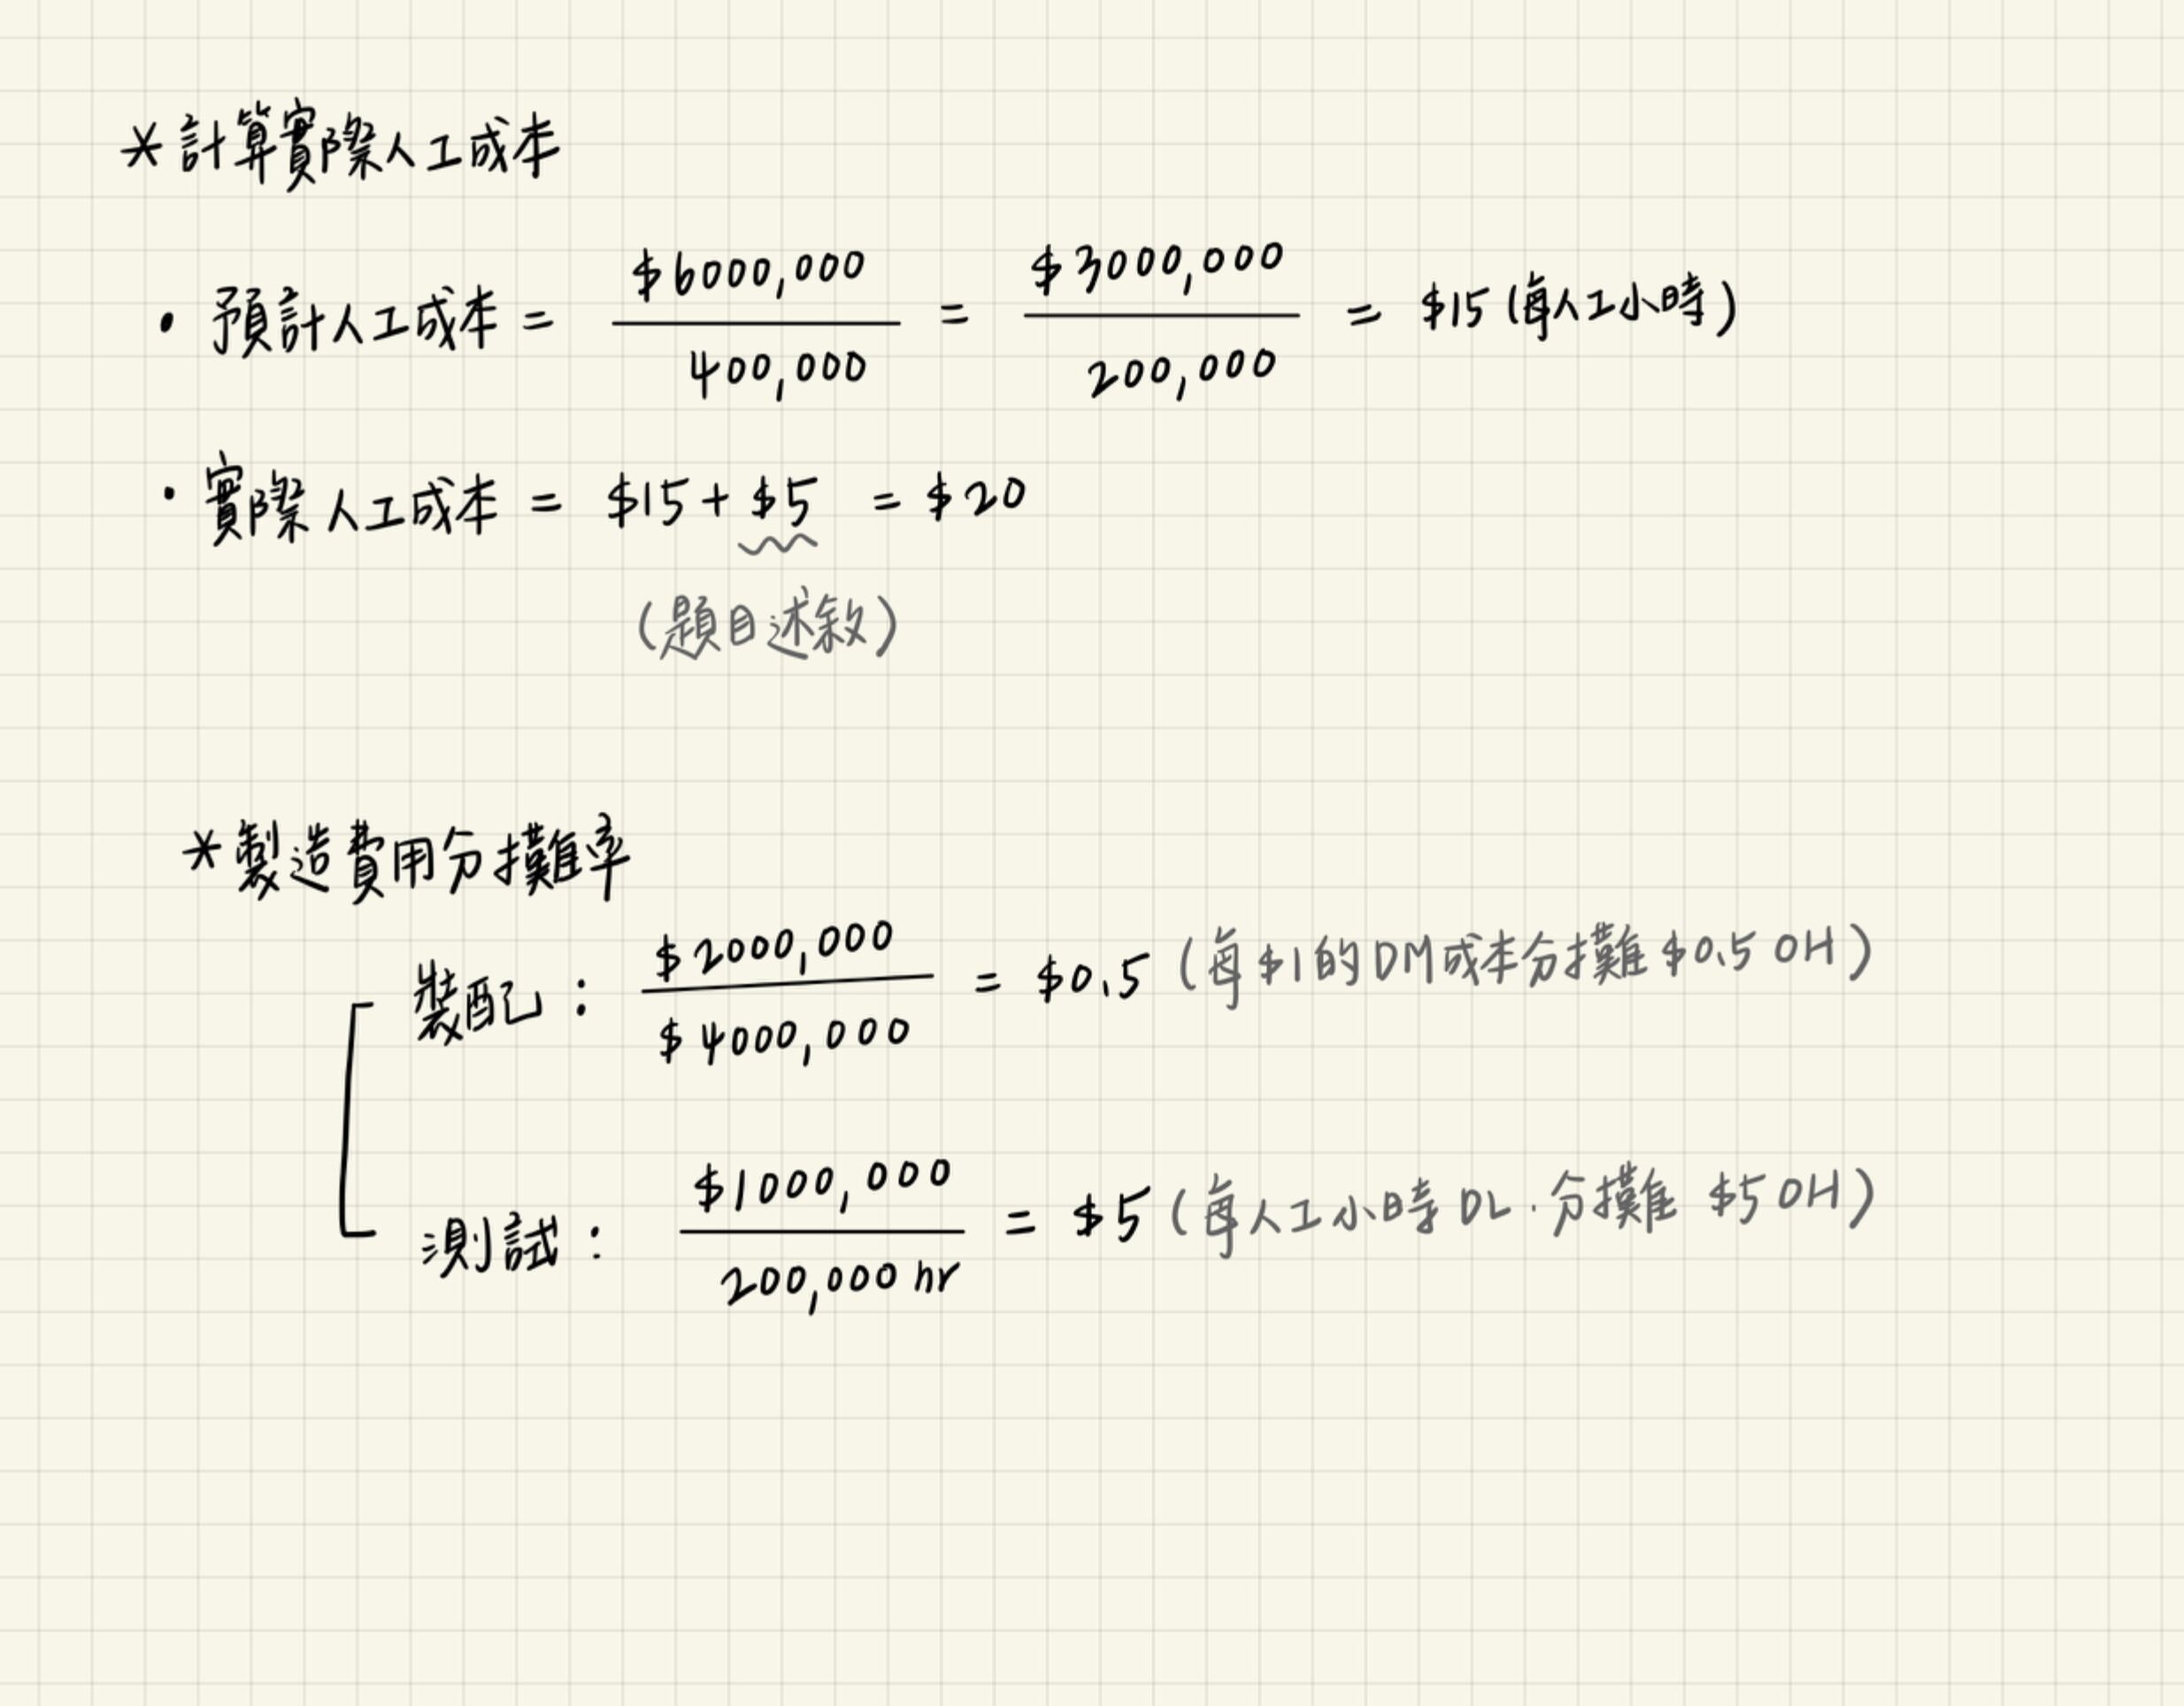 *計算實際人工成本
• 預計人工成本 = $6000,000 / 400,000 = $3000,000 / 200,000 = $15 (每人工小時)
• 實際人工成本 = $15 + $5 = $20
(題目述敘)
*製造費用分攤率
裝配: $2000,000 / $4000,000 = $0.5 (每$1的DM成本分攤$0.5 OH)
測試: $1000,000 / 200,000 hr = $5 (每人工小時DL.分攤 $5 OH)